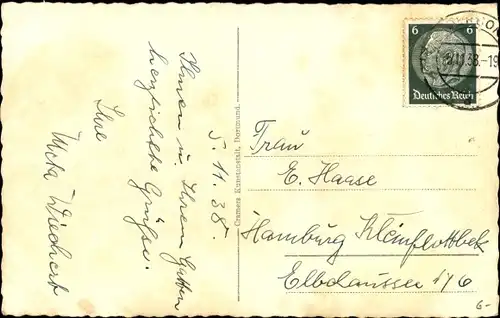 5. 11. 38.
Ihnen u. Ihrem Gatten
herzlichste Grüsse.
Ihre
Cramers Kunstanstalt, Dortmund.
6 6
Deutsches Reich
11.38.-19
Frau
E. Haase
Hamburg Kleinflottbek
Elbchaussee 176
6-